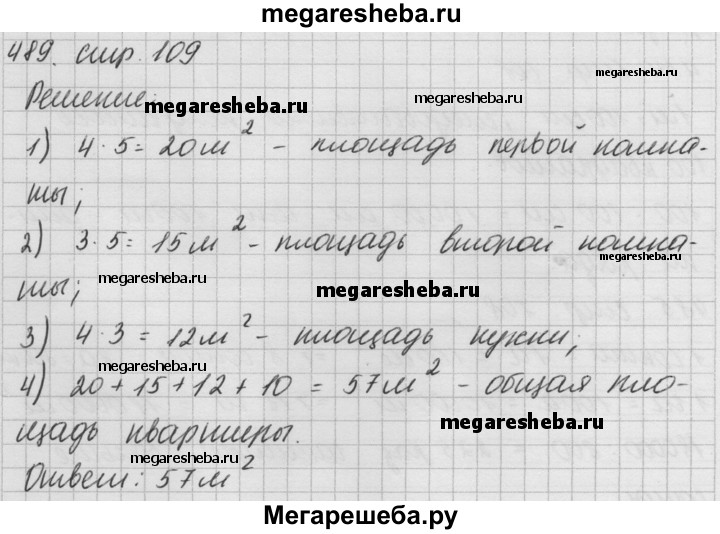 megaresheba.ru
489. стр. 109
megaresheba.ru
Решение:
megaresheba.ru
megaresheba.ru
1) 4 · 5 = 20 м² - площадь первой комна-
ты;
2) 3 · 5 = 15 м² - площадь второй комна-
megaresheba.ru
ты;
megaresheba.ru
megaresheba.ru
3) 4 · 3 = 12 м² - площадь кухни;
megaresheba.ru
4) 20 + 15 + 12 + 10 = 57 м² - общая пло-
megaresheba.ru
щадь квартиры.
megaresheba.ru
Ответ: 57 м²
Мегарешеба.ру